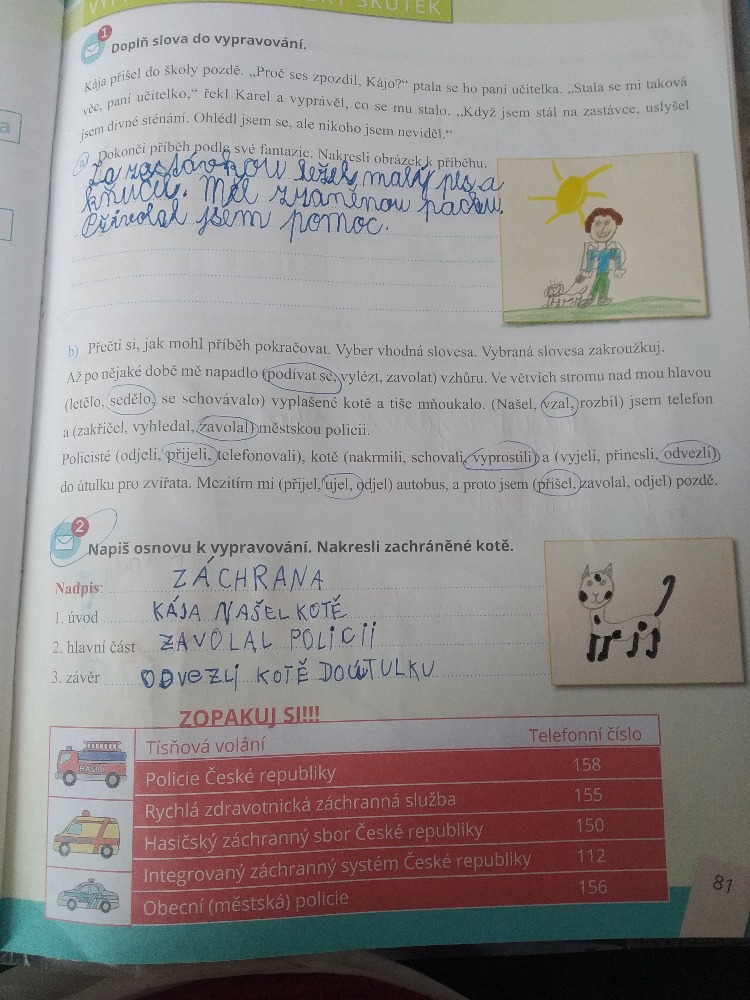 SKUTEK
1 Doplň slova do vypravování.
Kája přišel do školy pozdě. „Proč ses zpozdil, Kájo?“ ptala se ho paní učitelka. „Stala se mi taková
věc, paní učitelko,“ řekl Karel a vyprávěl, co se mu stalo. „Když jsem stál na zastávce, uslyšel
jsem divné sténání. Ohlédl jsem se, ale nikoho jsem neviděl.“
a) Dokonči příběh podle své fantazie. Nakresli obrázek k příběhu.
Za zastávkou ležel malý pes a
kňučel. Měl zraněnou packu.
Přivolal jsem pomoc.
b) Přečti si, jak mohl příběh pokračovat. Vyber vhodná slovesa. Vybraná slovesa zakroužkuj.
Až po nějaké době mě napadlo (podívat se, vylézt, zavolat) vzhůru. Ve větvích stromu nad mou hlavou
(letělo, sedělo, se schovávalo) vyplašené kotě a tiše mňoukalo. (Našel, vzal, rozbil) jsem telefon
a (zakřičel, vyhledal, zavolal) městskou policii.
Policisté (odjeli, přijeli, telefonovali), kotě (nakrmili, schovali, vyprostili) a (vyjeli, přinesli, odvezli)
do útulku pro zvířata. Mezitím mi (přijel, ujel, odjel) autobus, a proto jsem (přišel, zavolal, odjel) pozdě.
2 Napiš osnovu k vypravování. Nakresli zachráněné kotě.
Nadpis: ZÁCHRANA
1. úvod KÁJA NAŠEL KOTĚ
2. hlavní část ZAVOLAL POLICII
3. závěr ODVEZLI KOTĚ DO ÚTULKU
ZOPAKUJ SI!!!
Tísňová volání Telefonní číslo
Policie České republiky 158
Rychlá zdravotnická záchranná služba 155
Hasičský záchranný sbor České republiky 150
Integrovaný záchranný systém České republiky 112
Obecní (městská) policie 156
HASIČI
81